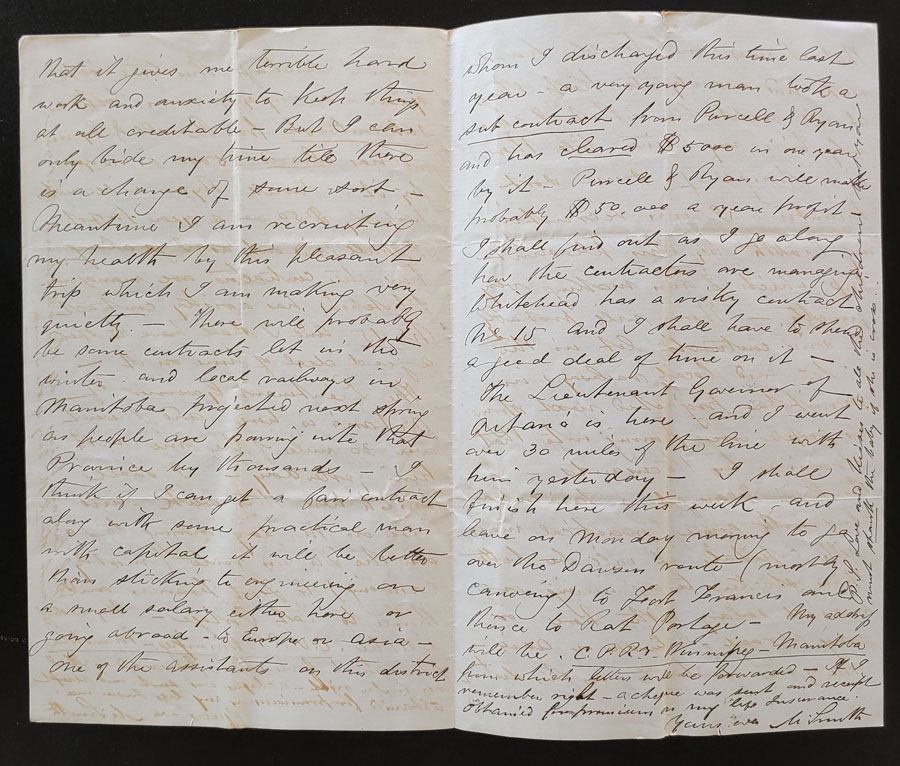 that it gives me terrible hard
work and anxiety to keep things
at all creditable - But I can
only bide my time till there
is a change of some sort -
Meantime I am recruiting
my health by this pleasant
trip which I am making very
quietly. - There will probably
be some contracts let in the
winter and local railways in
Manitoba projected next spring
as people are pouring into that
Province by thousands - I
think if I can get a fair contract
along with some practical man
with capital it will be better
than sticking to engineering on
a small salary either here or
going abroad - to Europe or Asia -
One of the assistants on this district
whom I discharged this time last
year - a very young man took a
sub contract from Purcell & Ryan
and has cleared $5000 in one year
by it - Purcell & Ryan will make
probably $50,000 a year profit -
I shall find out as I go along
how the contractors are managing
Whitehead has a risky contract
No 15 and I shall have to spend
a good deal of time on it -
The Lieutenant Governor of
Ontario is here and I went
over 30 miles of the line with
him yesterday - I shall
finish here this week and
leave on Monday morning to go
over the Dawson route (mostly
canoeing) to Fort Francis and
thence to Rat Portage - My address
will be. C.P.R.Y Winnipeg - Manitoba
from which letters will be forwarded - If I
remember right - a cheque was sent and receipt
obtained for premium on my life Insurance
Yours ever M Smith
P.S. Love and kisses to all the children &
must thank the baby if she is one